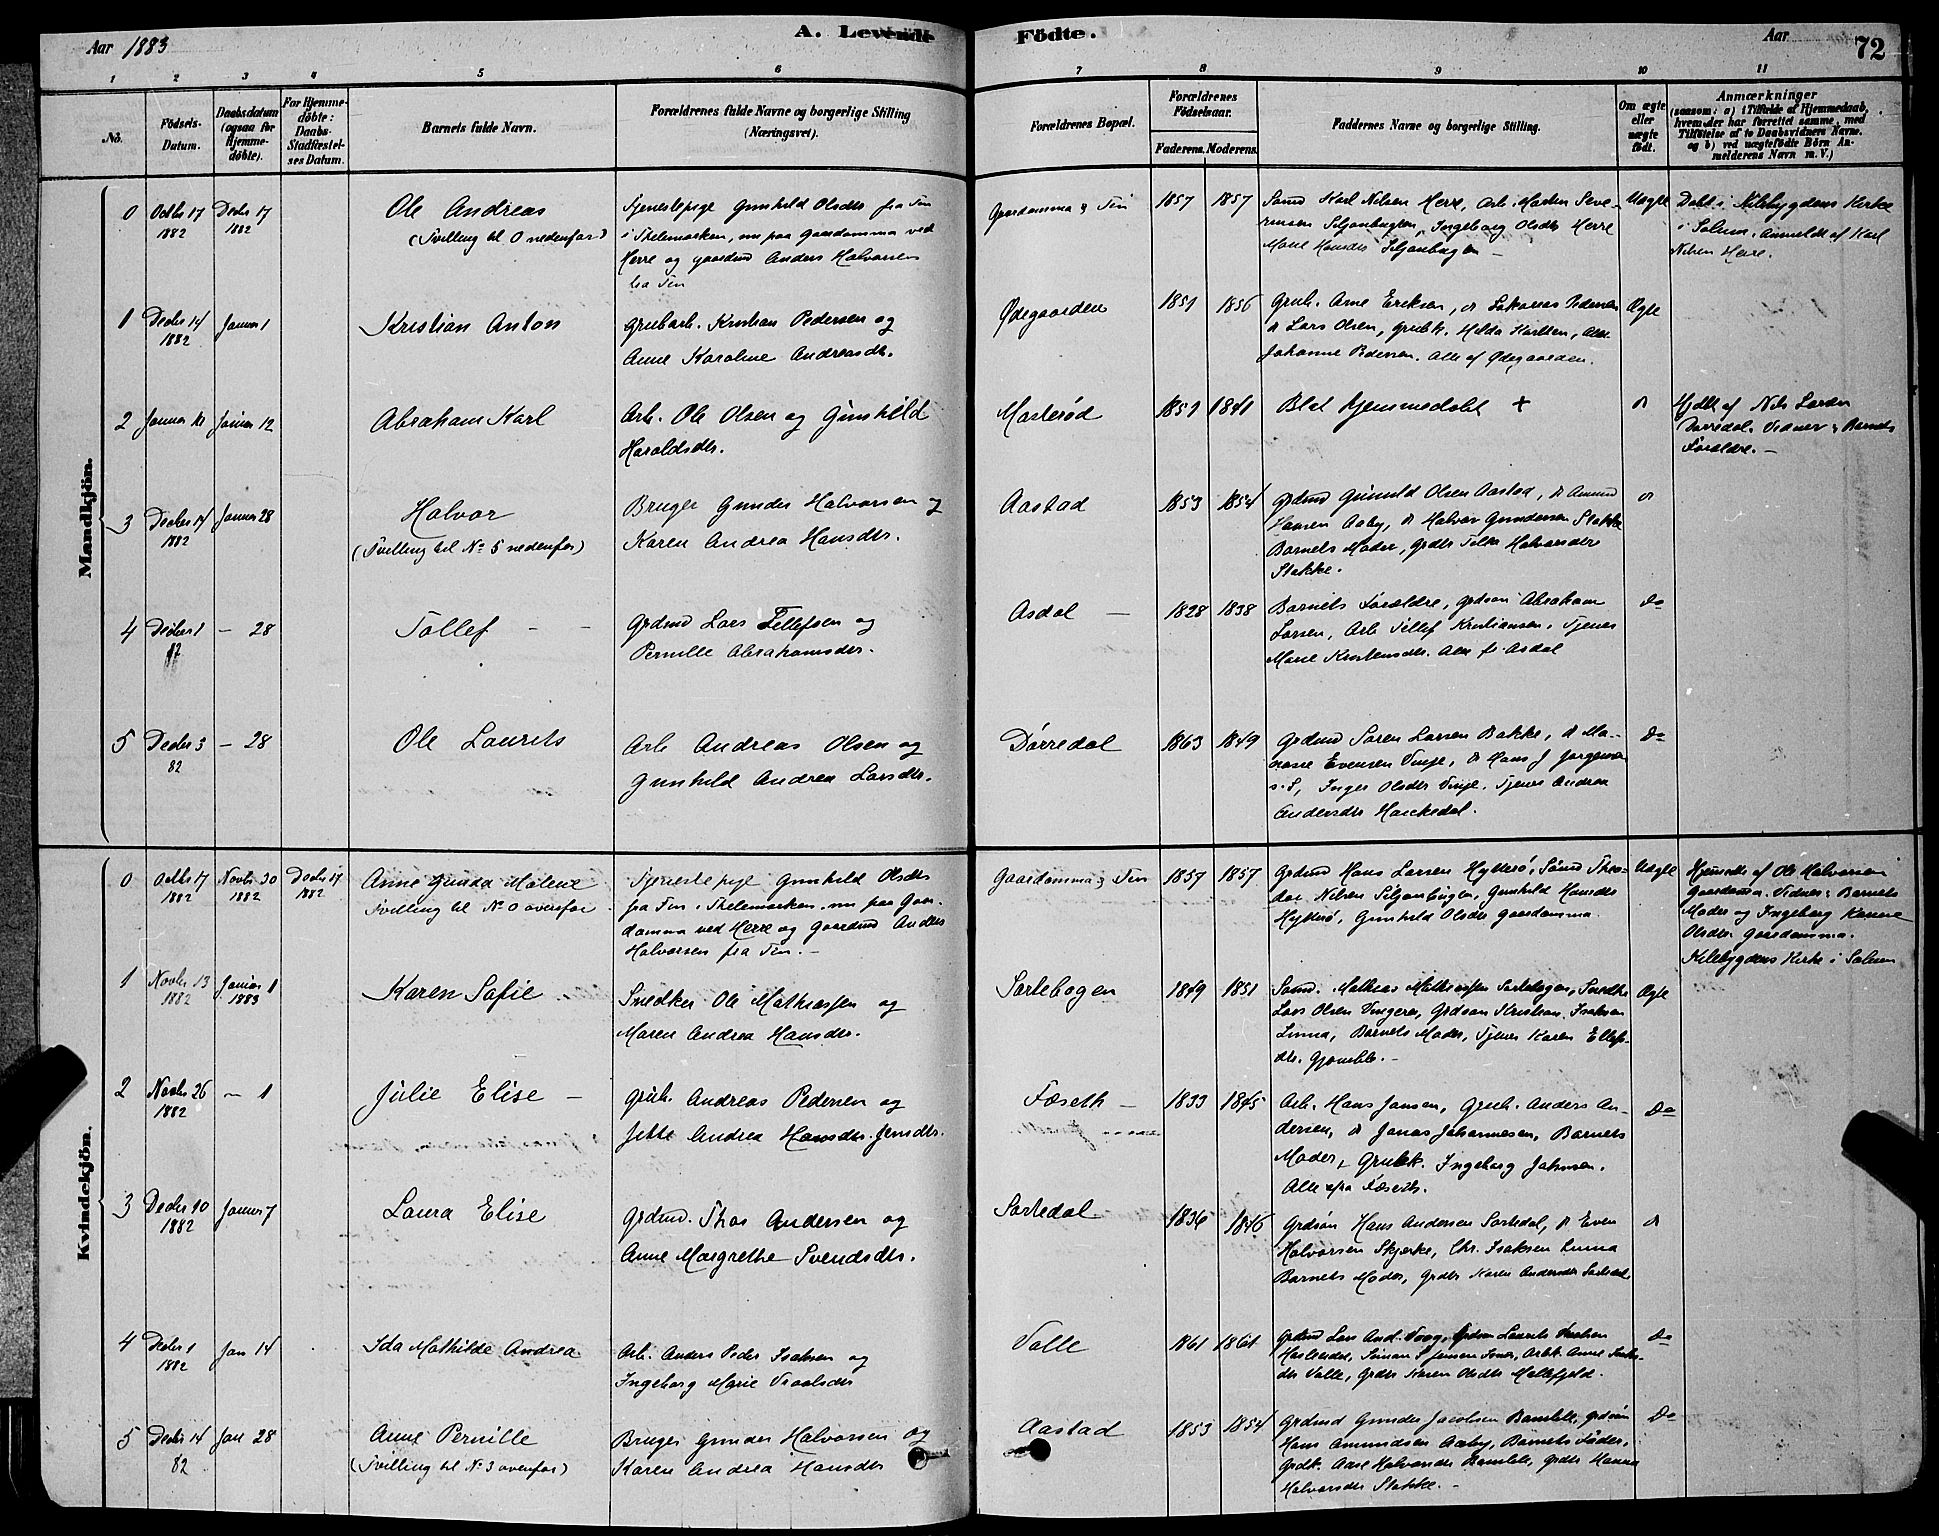 Aar 1883
A. Levende Födte.
Aar
72
1 2 3 4 5 6 7 8 9 10 11
No.
Födsels-Datum.
Daabsdatum (ogsaa for Hjemme-döbte).
For Hjemme-döbte: Daabs-Stadfæstelses Datum.
Barnets fulde Navn.
Forældrenes fulde Navne og borgerlige Stilling (Næringsvei).
Forældrenes Bopæl.
Forældrenes Födselsaar.
Faderens. Moderens.
Faddernes Navne og borgerlige Stilling.
Om ægte eller uægte födt.
Anmærkninger
(saasom: a) i Tilfælde af Hjemmedaab, hvem der har forrettet samme, med Tilföielse af to Daabsvidners Navne. og b) ved uægtefödte Börn Anmelderens Navn m.V.)
Mandkjön.
0 Octbr 17 1882 Decbr 17 1882
Ole Andreas
(Tvilling til 0 nedenfor)
Tjenestepige Gunhild Olsdtr fra Tin
i Thelemarken, nu paa Gaasdamma ved
Herre og gaardmd Anders Halvorsen
fra Tin
Gaasdamma & Tin 1857 1857
Samd Karl Nilsen Herre, Arb. Mads Severinsen
Siljanbugten, Ingeborg Olsdtr Herre
Marie Hansdtr Siljanbugten
Uægte
Døbt i Kilebygdens Kirke
i Solum. Anmeldt af Karl
Nilsen Herre.
1 Decbr 14 1882 Januar 1
Kristian Anton
Grubarb. Kristian Pedersen og
Anne Karoline Andreasdtr.
Ødegaarden 1851 1856
Grub. Arne Eriksen, do Sakarias Pedersen
do Lars Olsen, Grubk. Hilda Karlsen,
Johanne Pedersen. Alle af Ødegaarden.
Ægte
2 Januar Januar 12
Abraham Karl
Arb. Ole Olsen og Gunhild
Haroldsdtr.
Masterød 1851 1841
Blot hjemmedøbt +
do
Hjdbt af Nils Larsen
Dørredal. Vidner: Barnets
Forældre.
3 Decbr 14 1882 Januar 28
Halvor
(Tvilling til No 5 nedenfor)
Bruger Gunder Halvorsen og
Karen Andrea Hansdtr.
Aastad 1853 1854
Grdmd Gunuld Olsen Aastad, do Amund
Hansen Aaby, do Halvor Gundersen Stokke
Barnets Moder, Grdtr Halvorsdtr
Stokke.
do
4 Decbr 1 82 — 28
Tollef
Grdmd Lars Tellefsen og
Pernille Abrahamsdtr.
Asdal 1828 1838
Barnets Forældre, Grdsøn Abraham
Larsen, Arb Tellef Kristiansen, Tjener
Marie Kristensdtr. Alle fr. Asdal
Do
5 Decbr 3 82 — 28
Ole Laurits
Arb Andreas Olsen og
Gunhild Andrea Larsdtr.
Dørredal 1863 1849
Grdmd Søren Larsen Bakke, do
Evensen Vinje, do Hans J Jørgensen
s.S, Inger Olsdtr Vinje. Tjener Andrea
Andersdtr Hauekedal.
Do
Kvindekjön.
0 Octbr 17 1882 Novbr 30 1882 Decbr 17 1882
Anne Gunda Malene
Tvilling til No 0 ovenfor
Tjenestepige Gunhild Olsdtr
fra Tin i Thelemarken, nu paa Gaasdamma
ved Herre og Gaardmd Anders
Halvorsen fra Tin.
Gaasdamma & Tin 1857 1857
Grdmd Hans Larsen Hytterø, Sømd Theodor
Nilsen Siljanbugten, Gunhild Hansdtr
Hytterø, Gunhild Olsdtr Gaasdamma.
Uægte
Hjemdbt af Ole Halvorsen
Gaasdamma. Vidner: Barnets
Moder og Ingeborg Karine
Olsdtr Gaasdamma.
Kilebygdens Kirke i Solum
1 Novbr 13 1882 Januar 1 1883
Karen Sofie
Snedker Ole Mathiassen og
Maren Andrea Hansdtr.
Sortebogen 1849 1851
Sømd. Mathias Mathiassen Sortebogen, Snedker
Lars Olsen, Grdsøn Kristian Isaksen
Linna, Barnets Moder, Tjener Karen Ellefsdtr.
Ægte
2 Novbr 26 1882 — 1
Julie Elise
Grub. Andreas Pedersen og
Jette Andrea Hansdtr. Jensdtr.
Fæseth 1833 1845
Arb. Hans Jansen, Grub. Anders Andersen,
do Jonas Johannesen, Barnets
Moder, Grubk. Ingeborg Johnsen.
Alle fra Fæseth.
Do
3 Decbr 10 1882 Januar 7
Laura Elise
Grdmd. Thor Andersen og
Anne Margrethe Svendsdtr.
Sortedal 1836 1846
Grdsøn Hans Andersen Sortedal, do Even
Halvorsen Skjerke, Chr. Isaksen Linna
Barnets Moder, Grdtr Karen Andersdtr Sortedal
do
4 Decbr 1 1882 Jan 14
Ida Mathilde Andrea
Arb. Anders Peder Isaksen og
Ingeborg Marie
Valle 1861 1861
Grdmd Lars And. Grdsøn Laurits
Simon S Jensen Arbk Anne
Valle, Grdtr Karen Olsdtr
Do
5 Decbr 14 82 Jan 28
Anne Pernille
(Tvilling til No 3 ovenfor)
Bruger Gunder Halvorsen og
Karen Andrea Hansdtr
Aastad 1853 1854
Grdmd Gunder Jacobsen Bamble, Grdsøn
Hans Amundsen Aaby, Barnets Fader,
Grdk. Aase Halvorsdtr Bamble, Grdtr Hanna
Halvorsdtr Stokke.
Do